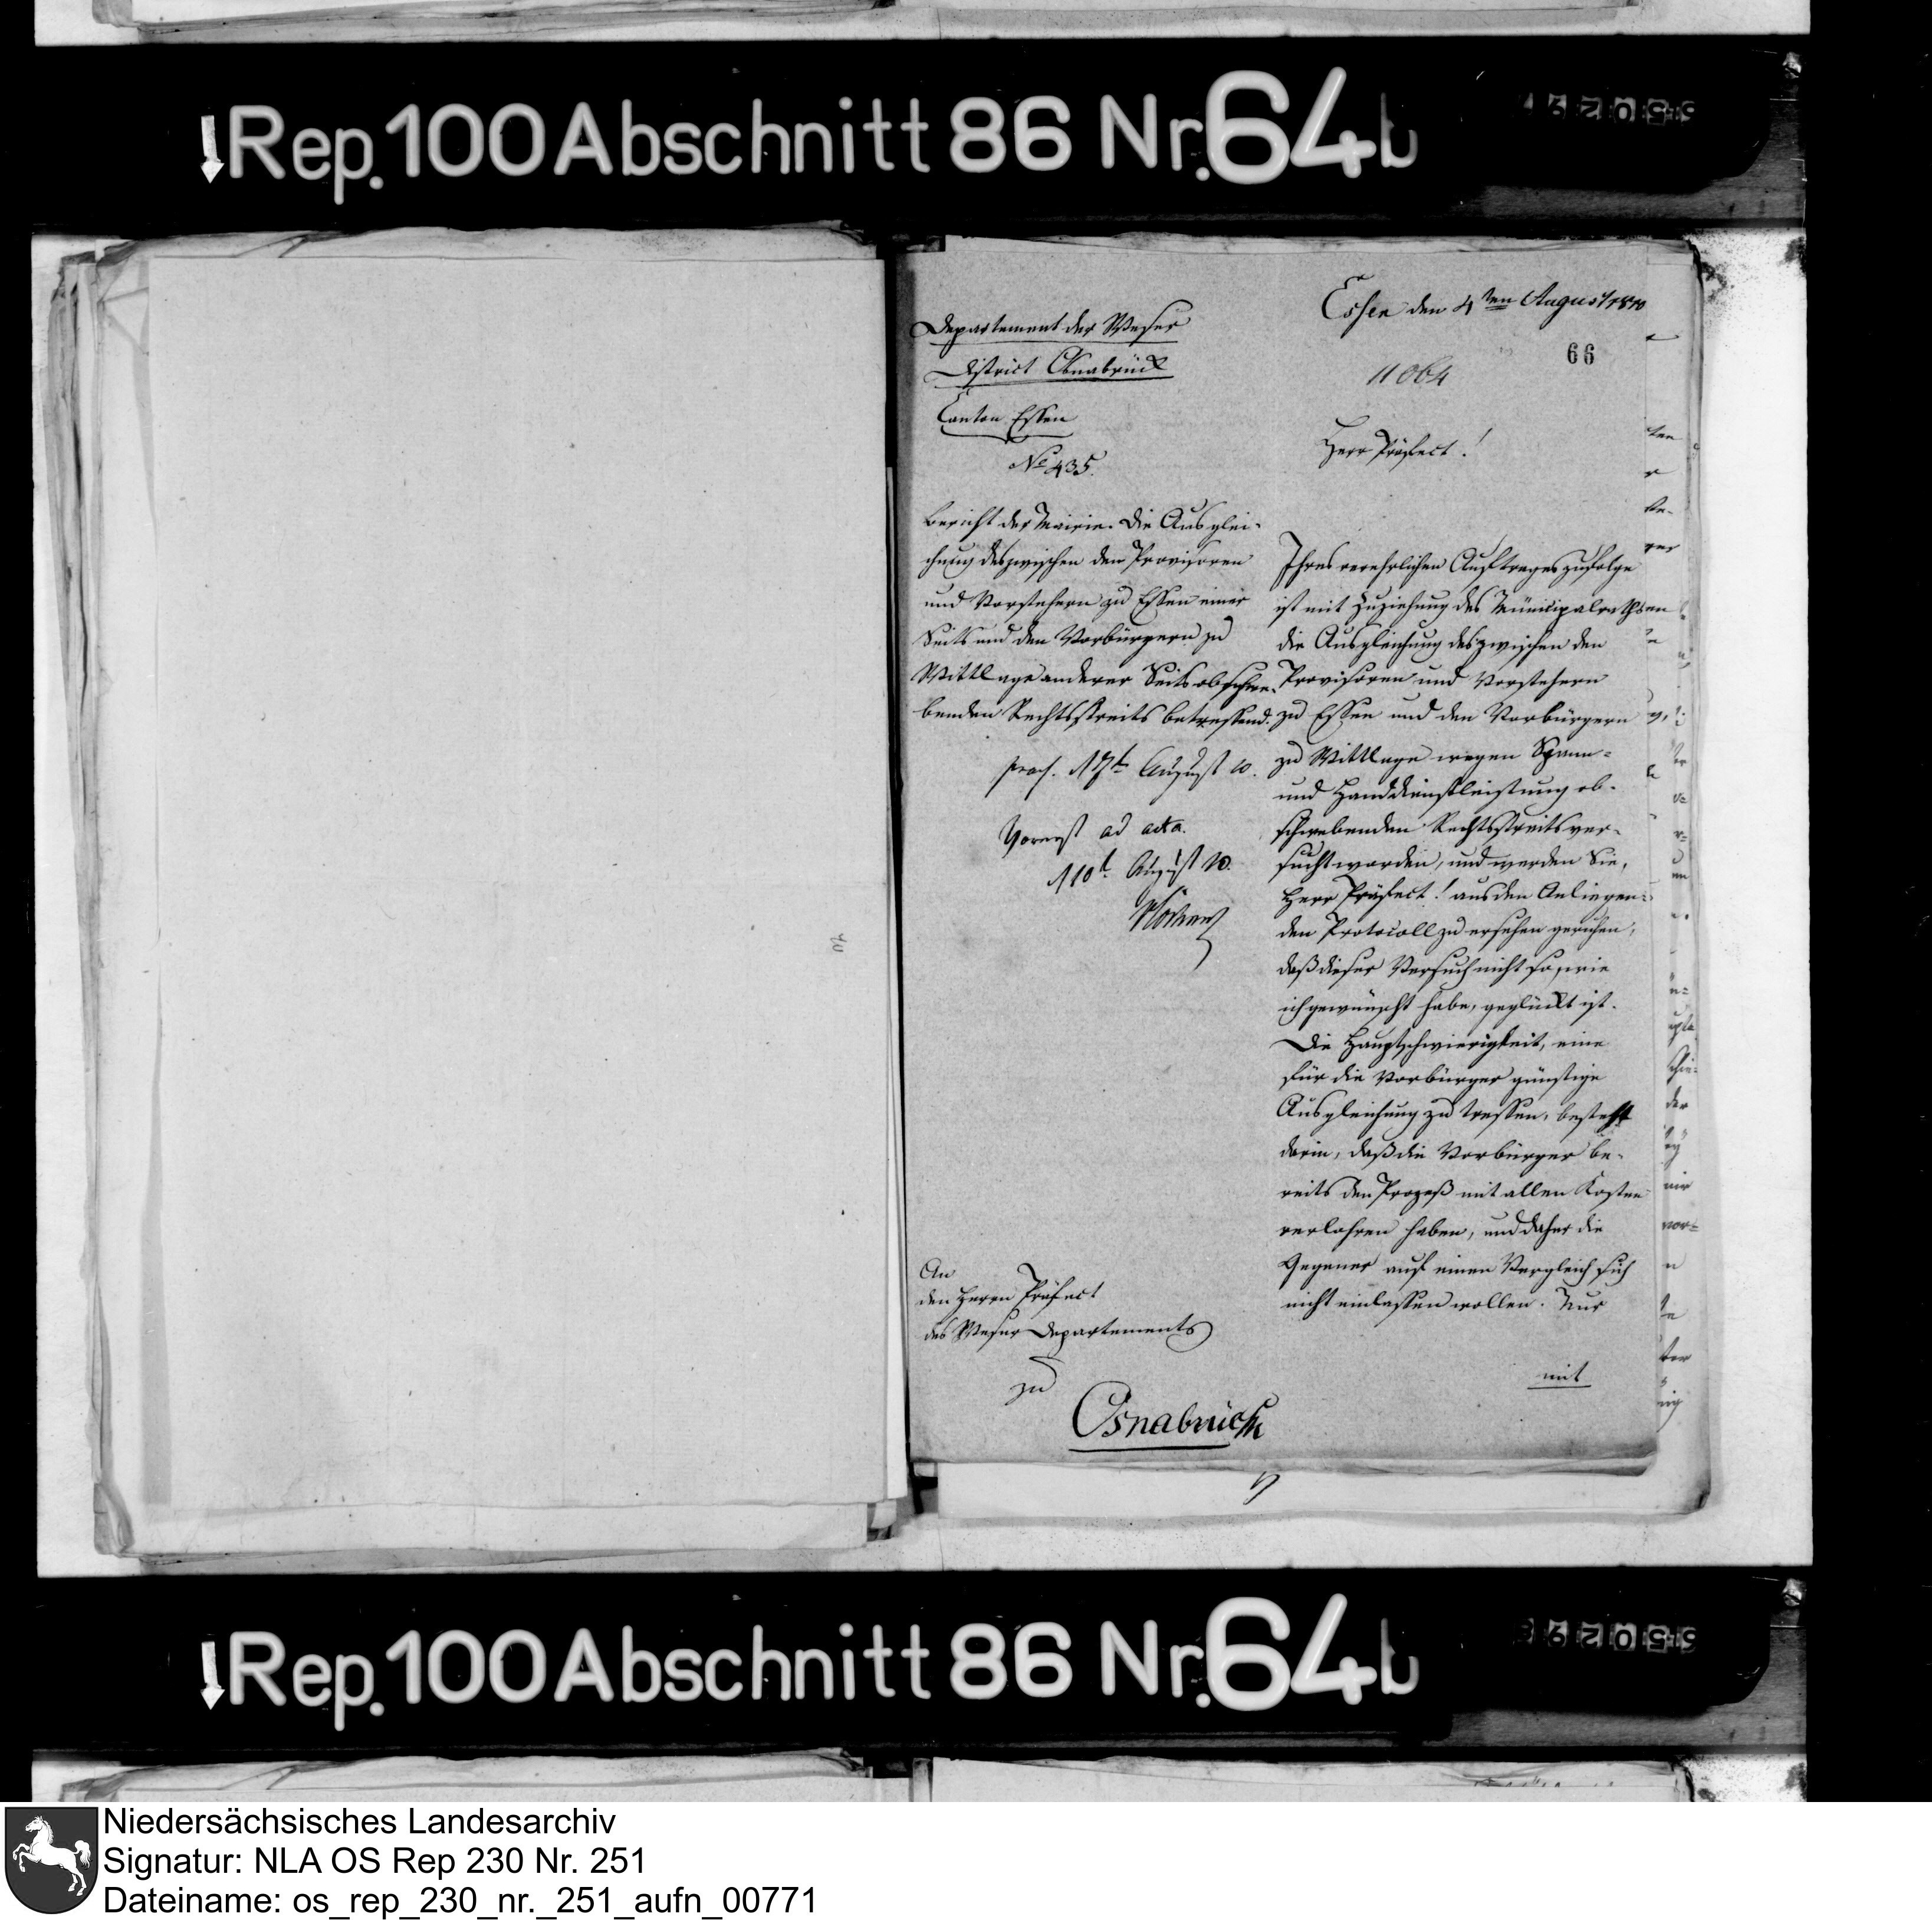 Rep. 100 Abschnitt 86 Nr. 64b
Departement der Weser
District Osnabrück
Canton Essen
No 435.
Bericht der Mairie. Die Ausglei-
chung des zwischen den Provisoren
und Vorstehern zu Essen einer
Seits und den Vorbürgern zu
Wittlage anderer Seits obschwe-
benden Rechtsstreits betreffend.
praes. d 7t August 10.
Vorerst ad acta.
d 10t. August 10.
An
den Herrn Präfect
des Weser Departements
zu
Osnabrück
Essen den 4ten August 1810
66
11064
Herr Präfect!
Ihres verehrlichen Auftrages zufolge
ist mit Zuziehung des Municipalraths
die Ausgleichung des zwischen den
Provisoren und Vorstehern
zu Essen und den Vorbürgern
zu Wittlage wegen Spann-
und Handdienstleistung ob-
schwebenden Rechtsstreits ver-
sucht worden, und werden Sie,
Herr Präfect! aus den Anliegen-
den Protocoll zu ersehen geruhen,
daß dieser Versuch nicht so, wie
ich gewünscht habe, geglückt ist.
Die Hauptschwierigkeit, eine
für die Vorbürger günstige
Ausgleichung zu treffen, besteht
darin, daß die Vorbürger be-
reits den Prozeß mit allen Kosten
verlohren haben, und daher die
Gegener auf einen Vergleich sich
nicht einlassen wollen. Nur
mit
Rep. 100 Abschnitt 86 Nr. 64b
Niedersächsisches Landesarchiv
Signatur: NLA OS Rep 230 Nr. 251
Dateiname: os_rep_230_nr._251_aufn_00771